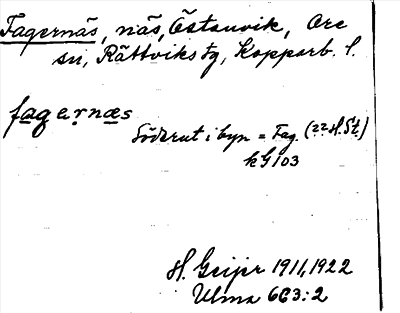 Fagernäs, näs, Östanvik, Ore
sn, Rättviks tg, Kopparb. l.
fagernæs
Söderut i byn = Fag. (22 H. St.)
kG 103
H. Geijer 1911, 1922
Ulma 663:2